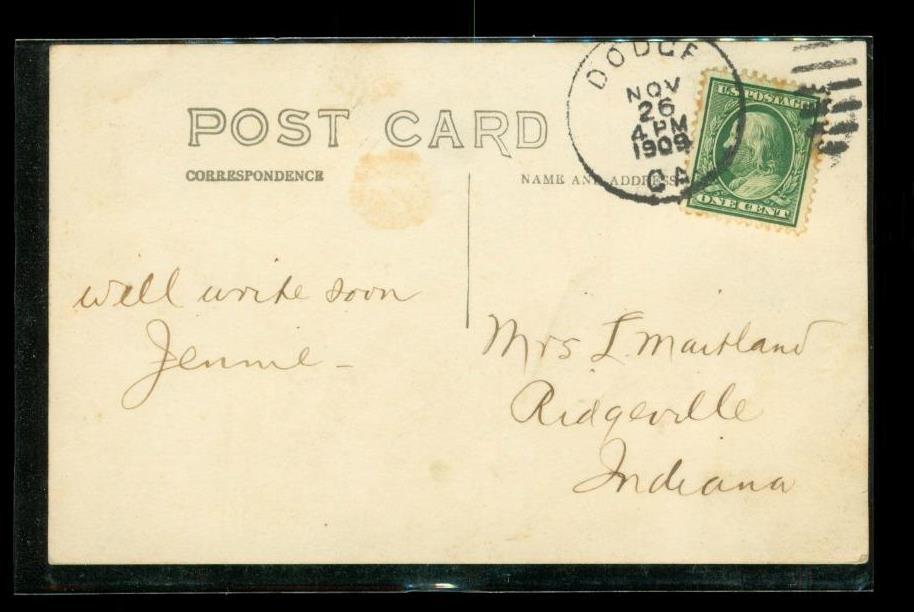 POST CARD
CORRESPONDENCE
NAME AND ADDRESS
DODGE
NOV
26
4 PM
1909
CAL
U.S. POSTAGE
ONE CENT
will write soon
Jennie -
Mrs L. Maitland
Ridgeville
Indiana